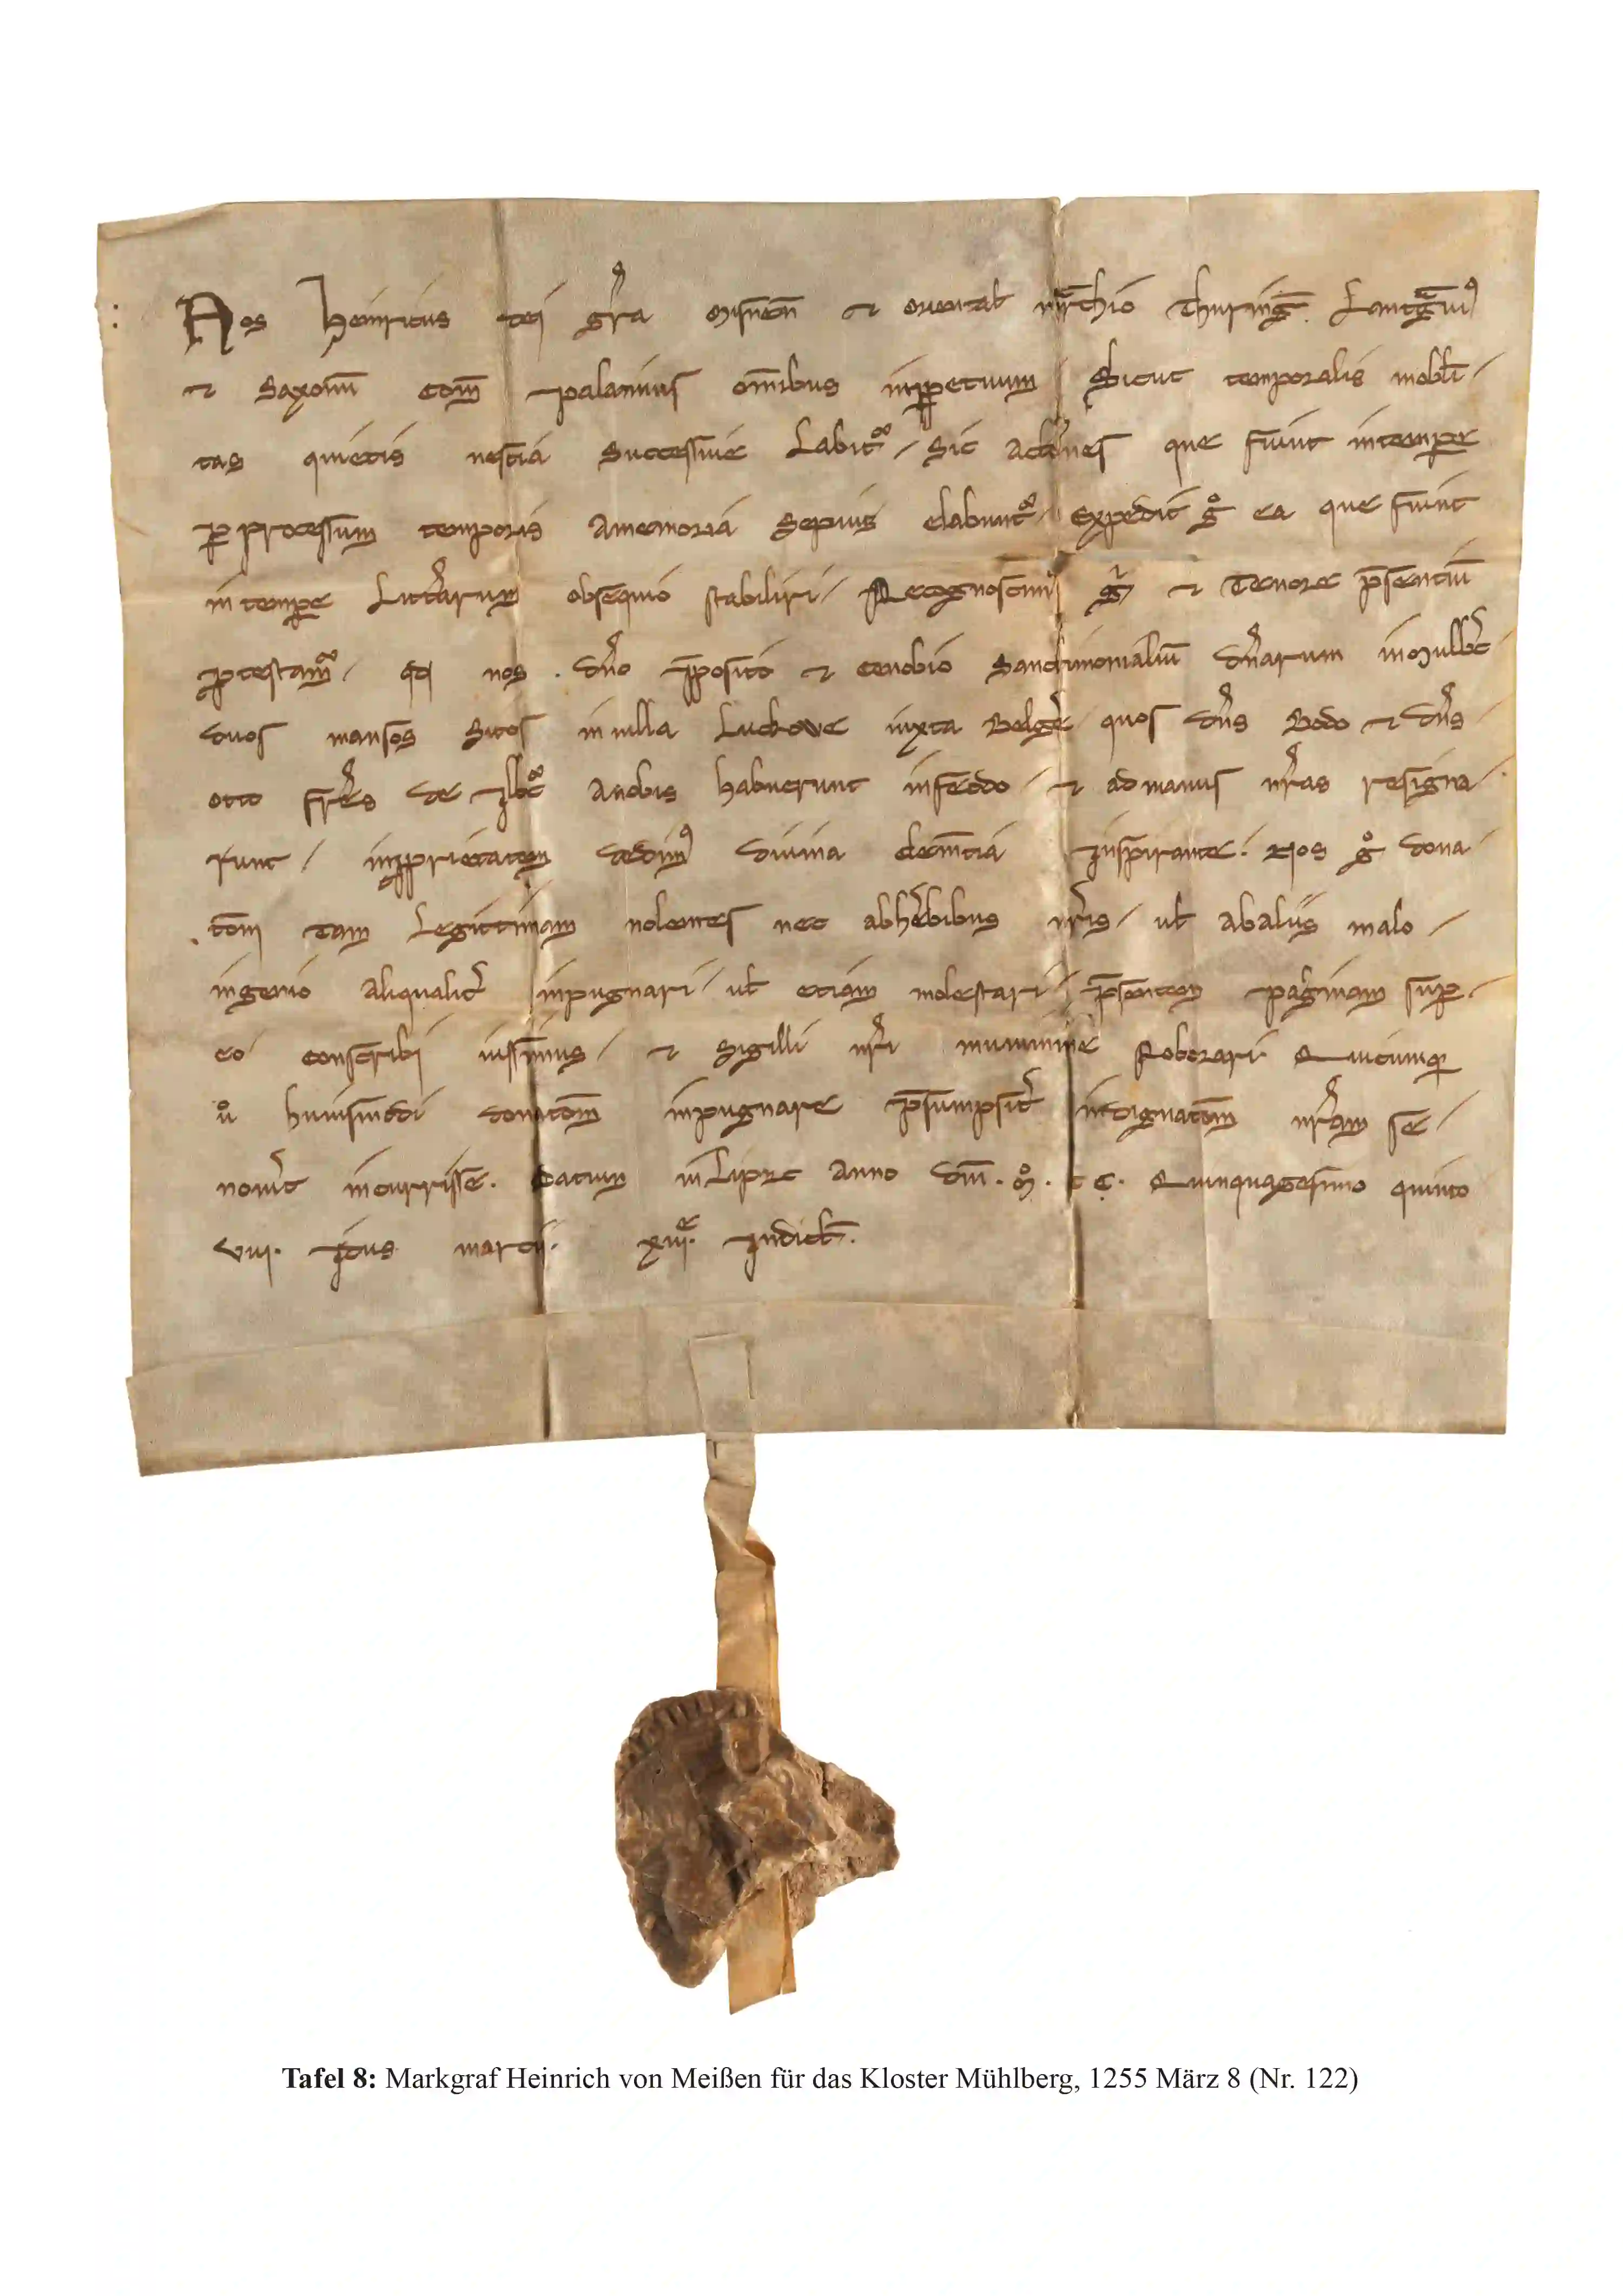 Nos Heinricus dei gr̄a Misnen̄ ⁊ orientaƚ marchio Thuring̅. Lantgrauiꝰ
⁊ Saxonū com̄ palatinus om̄ibus inp̲petuum Sicut temporalis mobili/
tas quietis nescia successiue Labit᷑ / sic actōnes que fiunt in tempꝑe
ꝑ processum temporis a memoria sepius elabunt᷑ / expedit gͦ ea que fiunt
in tempꝑe Litt̓arum obsequio stabiliri / Recognoscimꝰ gͦ ⁊ Tenore p̄sentiū
ꝓtestam᷑ / qđ nos . dn̄o p̄posito ⁊ cenobio Sanctimonialiū dn̄arum in Mulb̓c
duos mansos sitos in uilla Luckowe iuxta Belg̓e quos dn̄s Bodo ⁊ dn̄s /
otto fr̄es de Ilb᷑c a nobis habuerunt in feodo / ⁊ ad manus nr̄as resigna /
runt / in ꝓprietatem dedimꝰ diuina clem̄tia inspirante. Nos gͦ dona /
tōm Tam Legittimam nolentes nec ab h̓edibus nr̄is / uƚ ab aliis malo /
ingenio aliqualit̓ inpugnari / uƚ etiam molestari / p̄sentem paginam suꝑ /
eo conscribi iussimus / ⁊ sigilli nr̄i munimine Roborari Quicumqꝫ
uͦ huiusmodi donatōm inpugnare p̄sumpsit̓ indignatōm nr̄am se /
nou̓it incurrisse. Datum in Lipzc anno dn̄i . Mͦ . CC. Quinquagesimo quinto
VIII. Idus marcii. XIIIͤ. Indictō̄.
Tafel 8: Markgraf Heinrich von Meißen für das Kloster Mühlberg, 1255 März 8 (Nr. 122)